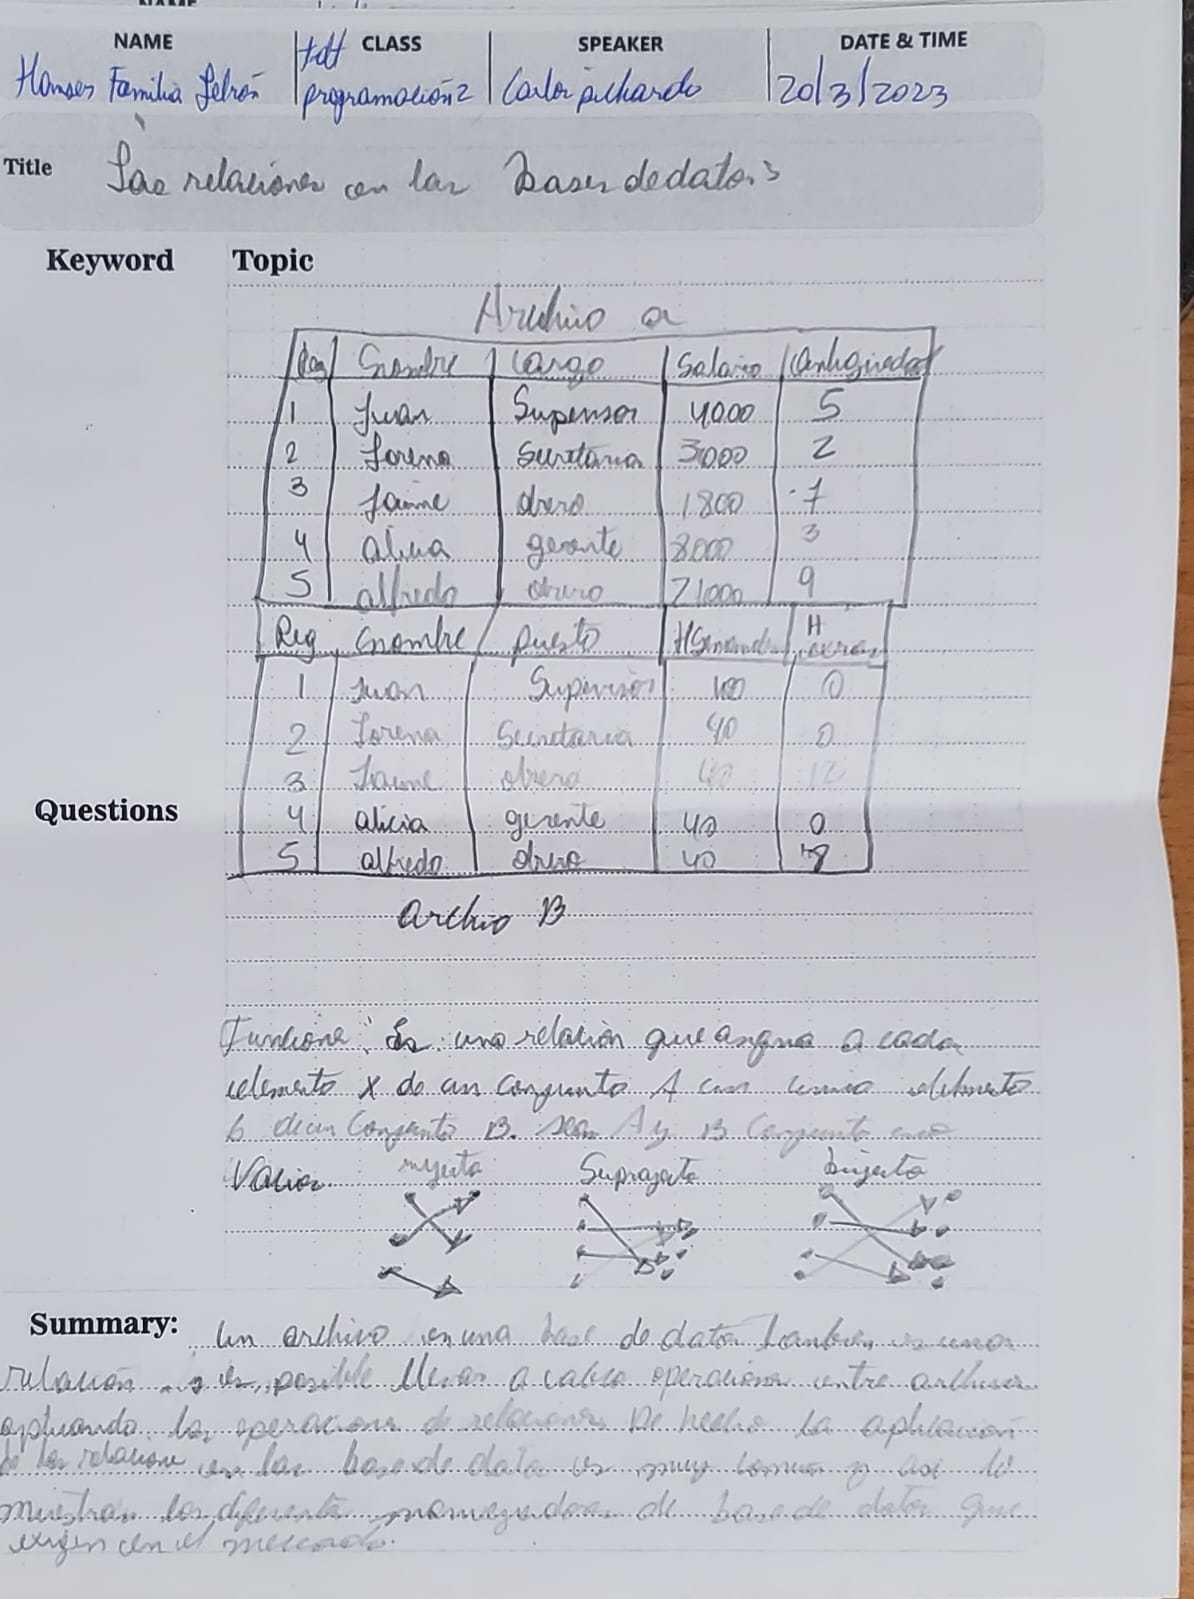 NAME CLASS SPEAKER DATE & TIME
Hanser Familia Lebrón programación2 Carlos pichardo 20/3/2023
Title Las relaciones en las Bases de datos
Keyword Topic
Archivo a
Reg Nombre Cargo Salario Antiguedad
1 Juan Supervisor 4000 5
2 Lorena Secretaria 3000 2
3 Jaime obrero 1800 7
4 alicia gerente 8000 3
5 alfredo obrero 9
Reg Nombre puesto H Semanales H extras
1 Juan Supervisor 0
2 Lorena Secretaria 40 0
3 Jaime obrero 40 12
Questions
4 alicia gerente 40 0
5 alfredo obrero 40 8
archio B
Funcione: Es una relación que asigna a cada
elemento x de un conjunto A un único elemento
b de un Conjunto B. sean A y B Conjunto
Valios inyecta Suprayecta biyecta
Summary: Un archivo en una base de datos tambien es una
relación y es posible llevar a cabo operaciones entre archivos
aplicando las operaciones de relaciones De hecho la aplicación
de las relacione en las base de data es muy comun y asi lo
muestran los diferente manegadores de base de datos que
exigen en el mercado.